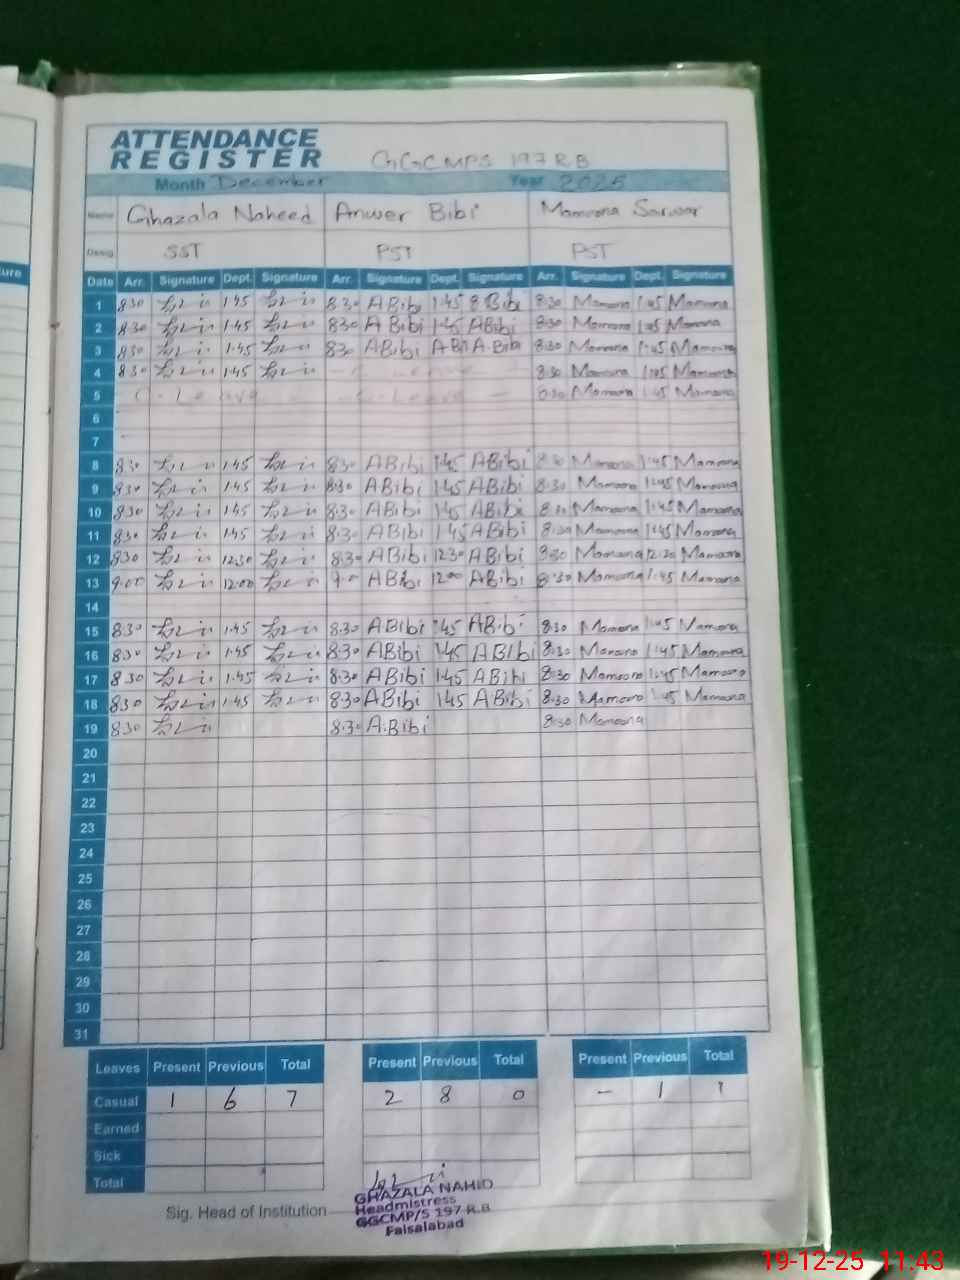 ATTENDANCE
REGISTER GGCMPS 197 RB
Month December Year 2025
Name Ghazala Naheed Anwer Bibi Mamoona Sarwar
Desig. SST PST PST
ture
Date Arr. Signature Dept. Signature Arr. Signature Dept. Signature Arr. Signature Dept. Signature
1 8:30 1:45 8:30 A Bibi 1:45 8:30 Mamoona 1:45 Mamoona
2 8:30 1:45 8:30 A Bibi 1:45 ABibi 8:30 Mamoona 1:45 Mamoona
3 8:30 1:45 8:30 ABibi A Bibi 8:30 Mamoona 1:45 Mamoona
4 8:30 1:45 Leave 8:30 Mamoona 1:45 Mamoona
5 C - Leave Leave 8:30 Mamoona 1:45 Mamoona
6
7
8 8:30 1:45 8:30 ABibi 1:45 ABibi 8:30 Mamoona 1:45 Mamoona
9 8:30 1:45 8:30 ABibi 1:45 ABibi 8:30 Mamoona 1:45 Mamoona
10 8:30 1:45 8:30 ABibi 1:45 ABibi 8:30 Mamoona 1:45 Mamoona
11 8:30 1:45 8:30 ABibi 1:45 ABibi 8:30 Mamoona 1:45 Mamoona
12 8:30 12:30 8:30 ABibi 12:30 ABibi 8:30 Mamoona 12:30 Mamoona
13 9:00 12:00 9:0 ABibi 12:00 ABibi 8:30 Mamoona 1:45 Mamoona
14
15 8:30 1:45 8:30 ABibi 1:45 ABibi 8:30 Mamoona 1:45 Mamoona
16 8:30 1:45 8:30 ABibi 1:45 ABibi 8:30 Mamoona 1:45 Mamoona
17 8:30 1:45 8:30 ABibi 1:45 ABibi 8:30 Mamoona 1:45 Mamoona
18 8:30 1:45 8:30 ABibi 1:45 ABibi 8:30 Mamoona 1:45 Mamoona
19 8:30 8:30 A.Bibi 8:30 Mamoona
20
21
22
23
24
25
26
27
28
29
30
31
Leaves Present Previous Total Present Previous Total Present Previous Total
Casual 1 6 7 2 8 0 - 1 1
Earned
Sick
Total
Sig. Head of Institution
GHAZALA NAHID
Headmistress
GGCMP/S 197 R.B
Faisalabad
19-12-25 11:43